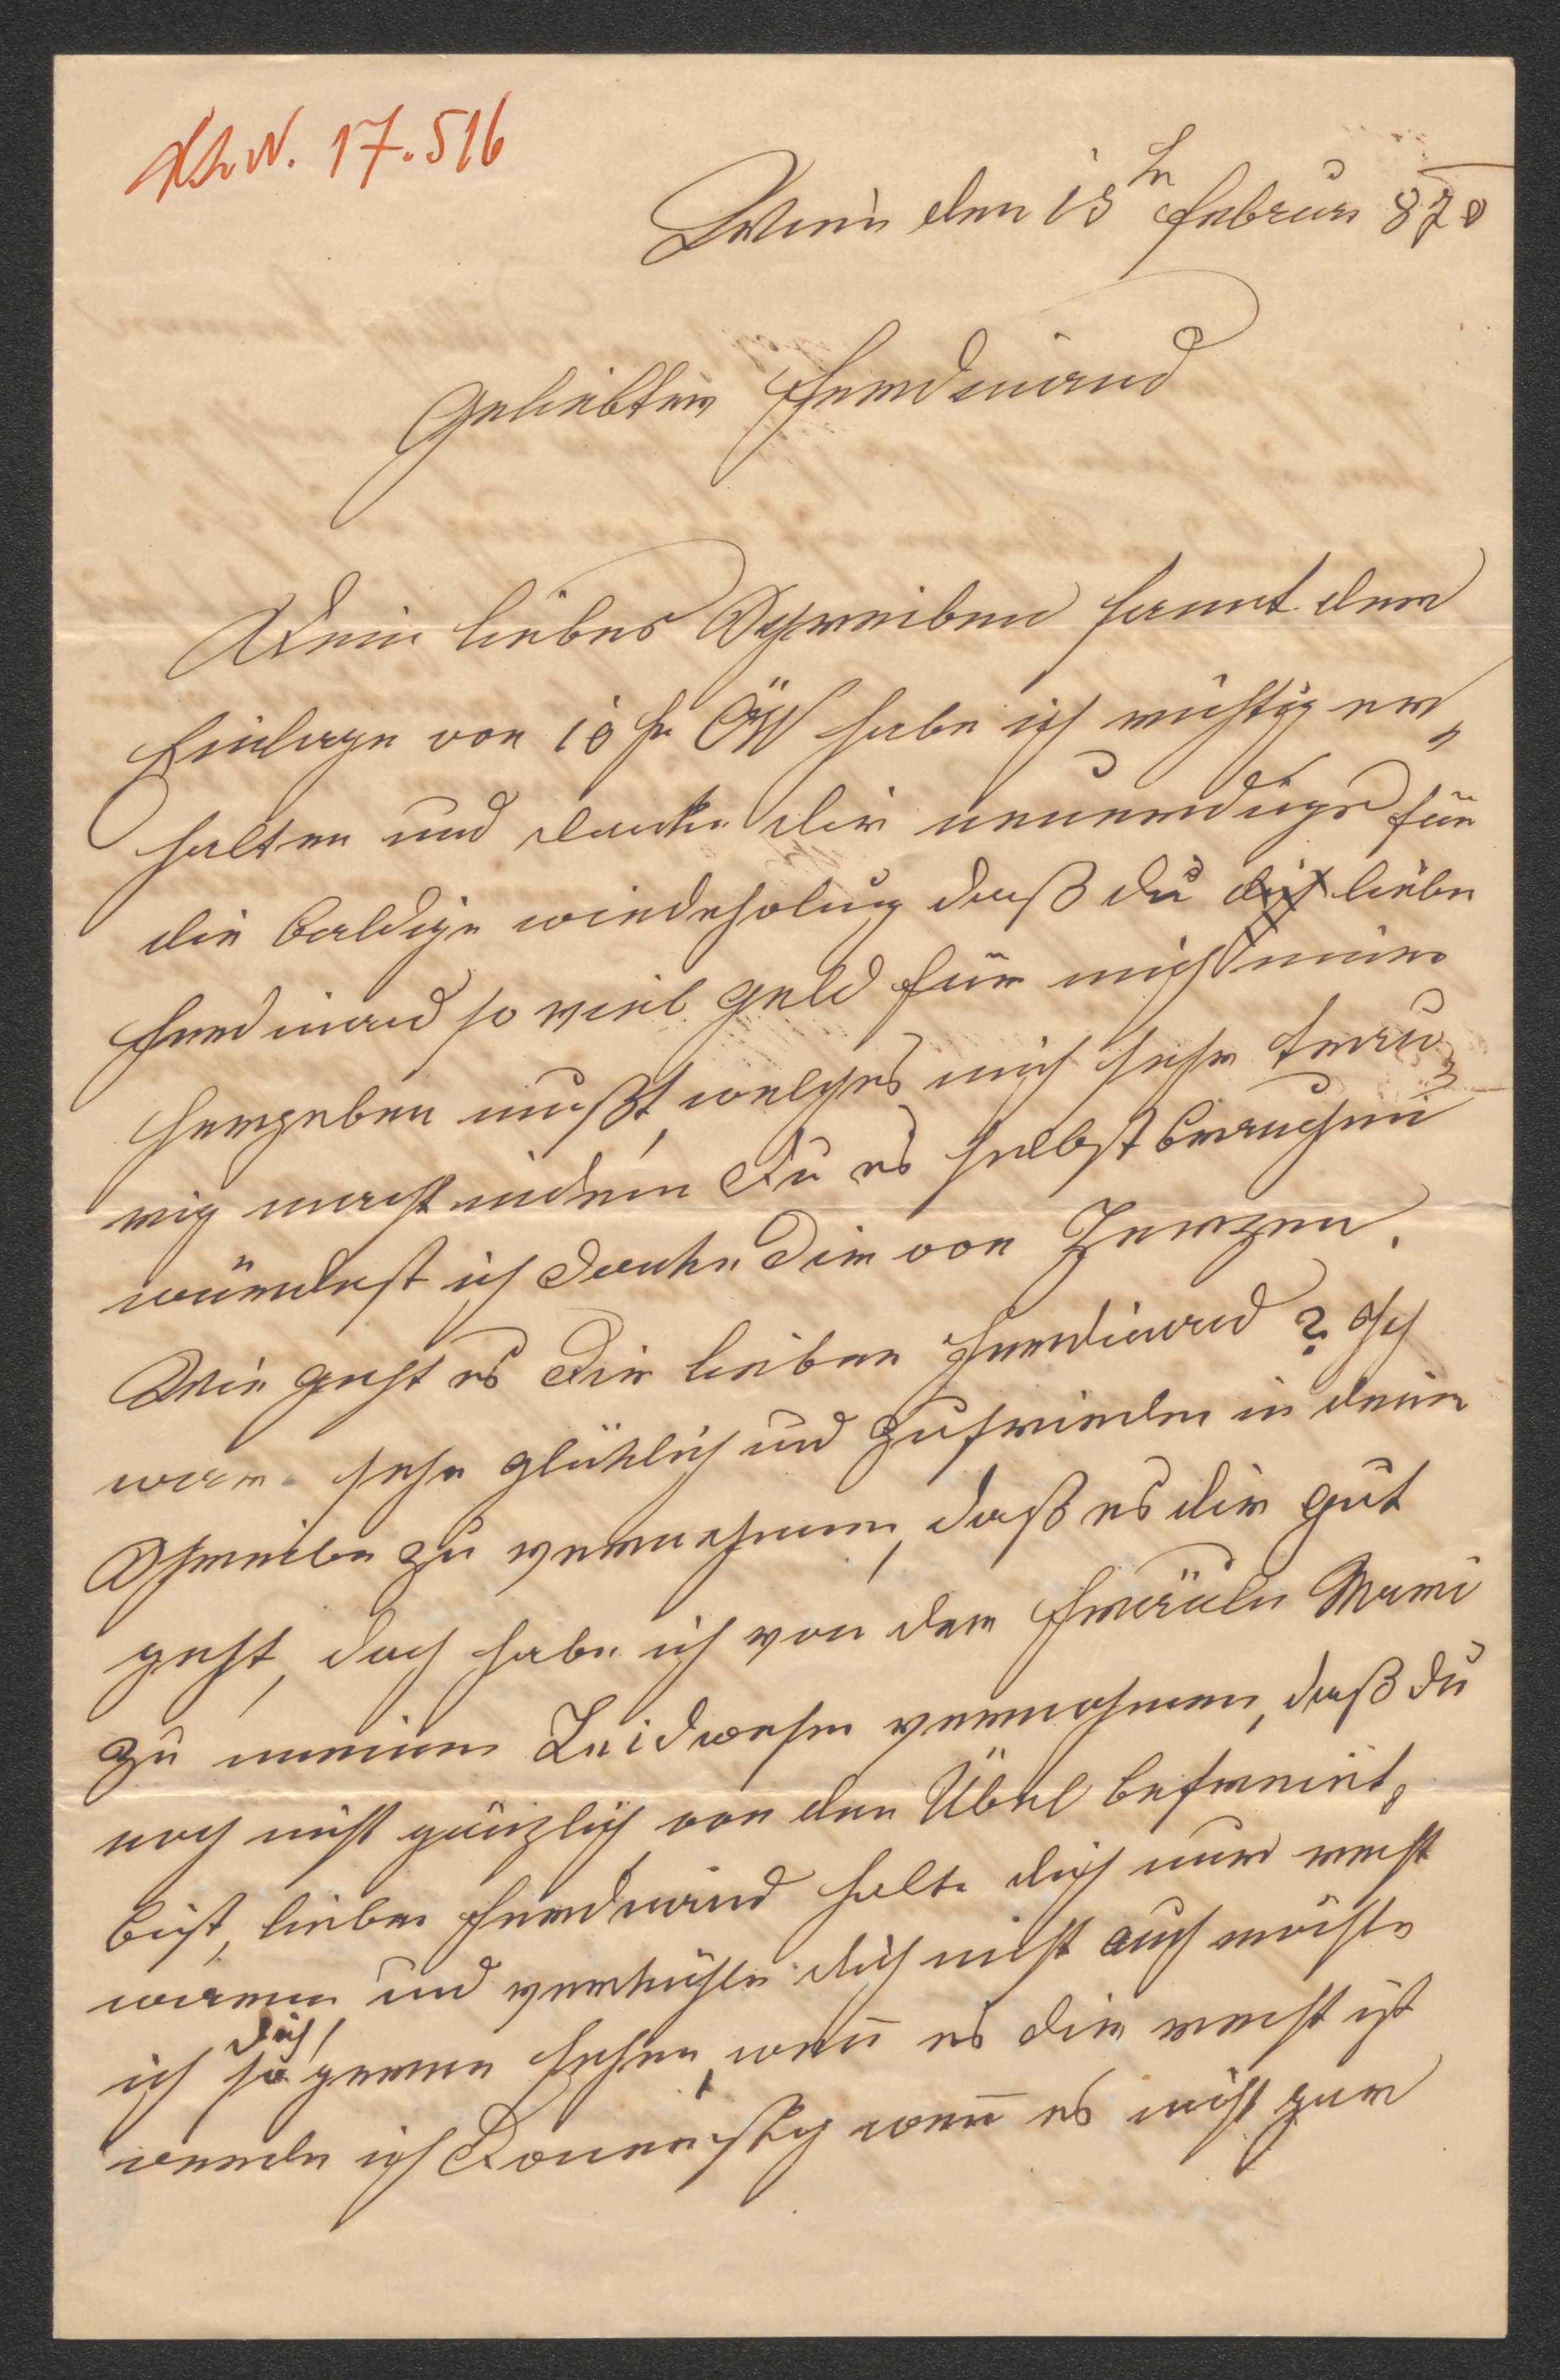 17.516
Wien den 15tn Februar 870
Geliebter Ferdinand
Dein liebes Schreiben samt der
Einlage von 10 fr ÖW habe ich richtig er„
halten und danke dir neuerdigs für
die baldige wiederholung daß du dich liebe
Ferdinand so viel Geld für mich immer
hergeben mußt, welches mich sehr trau„
rig macht indem Du es selbst brauchen
würdest ich danke Dir von Herzen.
Wie geht es Dir lieber Ferdinand? Ich
war sehr glüklich und zufrieden in dein
Schreiben zu vernehmen, daß es dir gut
geht, doch habe ich von der Fräulen Mari
zu meinem Leidwesen vernohmen, daß du
noch nicht gänzlich von den Übel befreit
bist, lieber Ferdinand halte dich nur recht
warm und verkühle dich nicht auch möchte
ich dich so gerne sehen, wen̄ es dir recht ist
werde ich Donnerstag wen̄ es nicht gar